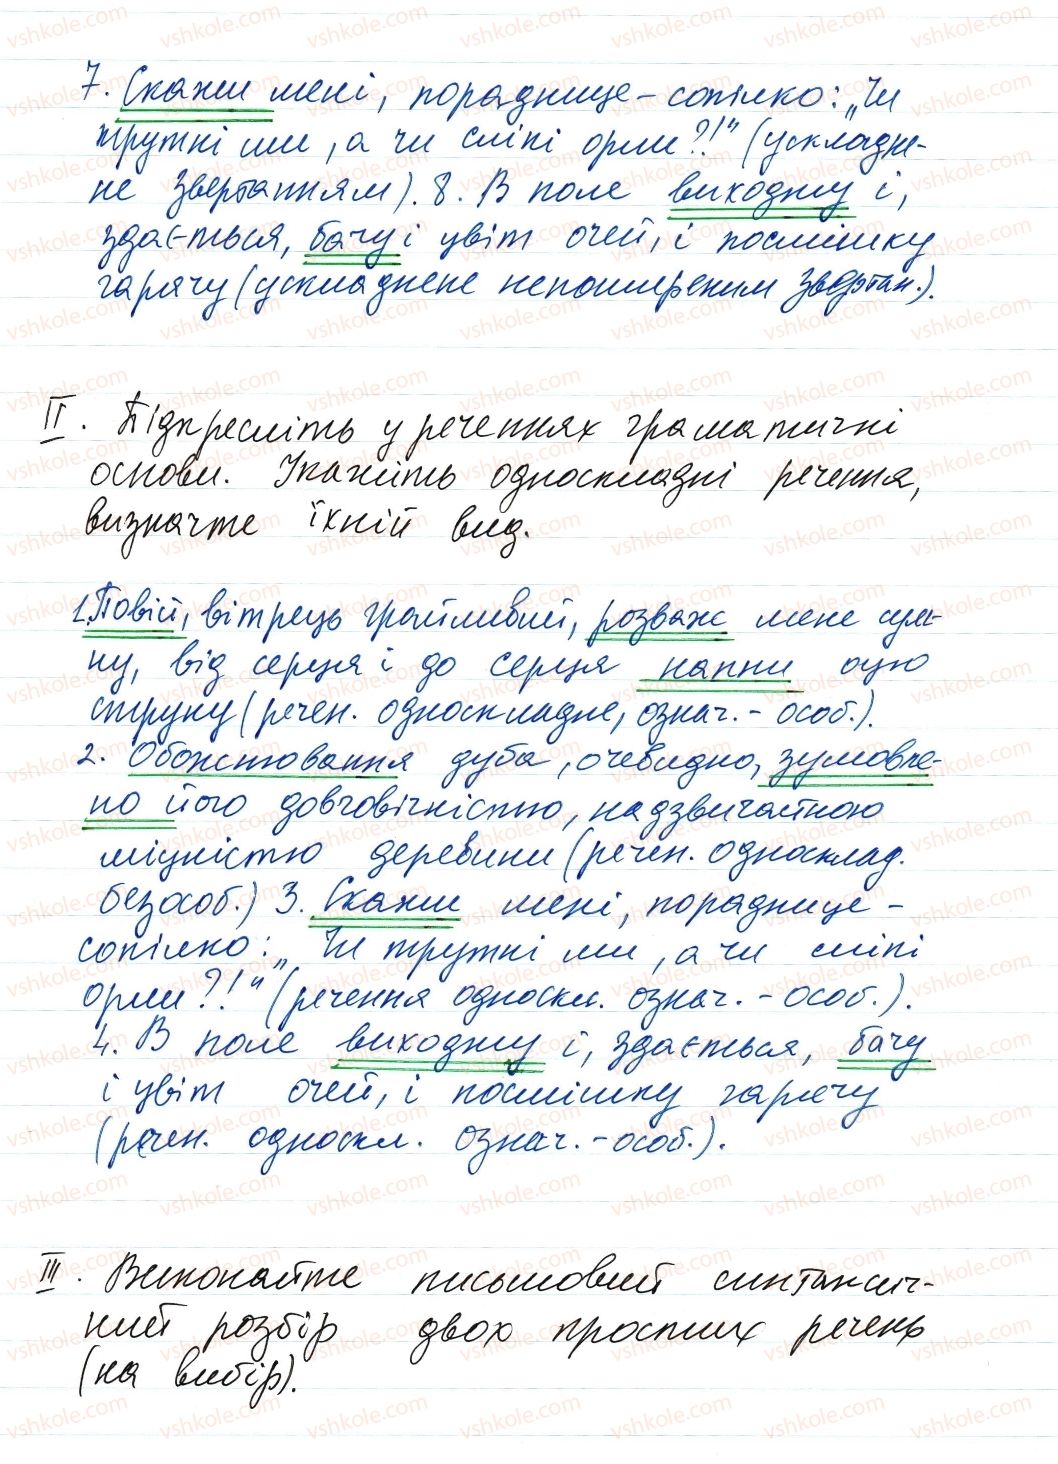 7. Скажи мені, пораднице-сопілко: „Чи
трутні ми, а чи сліпі орли?!" (ускладне-
не звертанням). 8. В поле виходжу і,
здається, бачу і цвіт очей, і посмішку
гарячу (ускладнене непоширеним звертан.).
II. Підкресліть у реченнях граматичні
основи. Укажіть односкладні речення,
визначте їхній вид.
1. Повій, вітрець грайливий, розваж мене сум-
ну, від серця і до серця напни оцю
струну (речен. односкладне, означ.-особ.).
2. Обожнювання дуба, очевидно, зумовле-
но його довговічністю, надзвичайною
міцністю деревини (речен. односклад.
безособ.) 3. Скажи мені, пораднице-
сопілко: „Чи трутні ми, а чи сліпі
орли?!" (речення односкл. означ.-особ.).
4. В поле виходжу і, здається, бачу
і цвіт очей, і посмішку гарячу
(речен. односкл. означ.-особ.).
III. Виконайте письмовий синтаксич-
ний розбір двох простих речень
(на вибір).